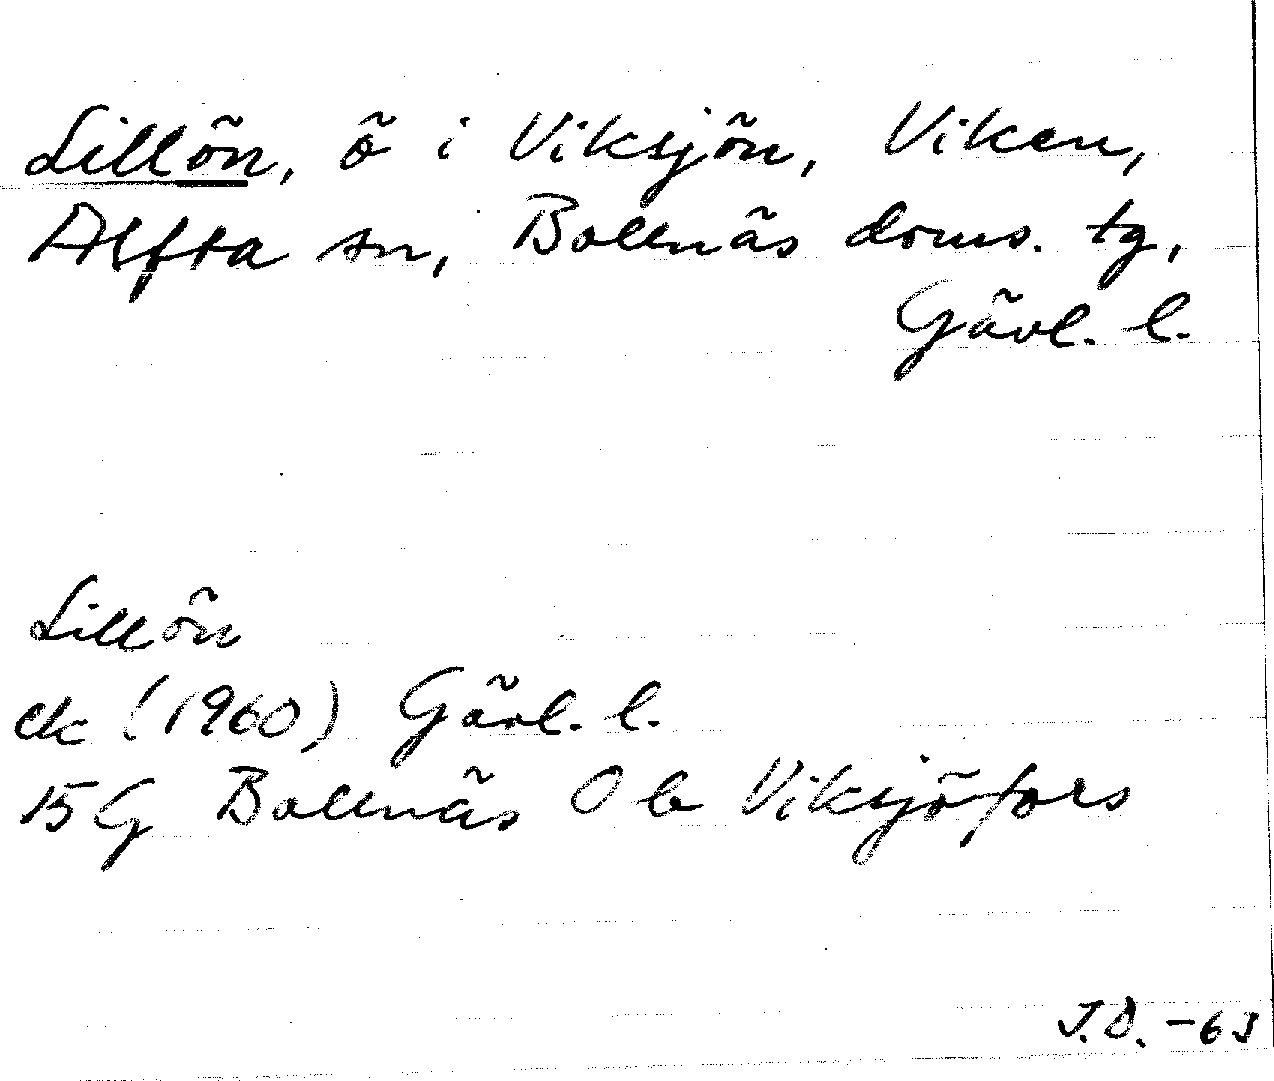 Lillön, ö i Viksjön, Viken,
Alfta sn, Bollnäs doms. tg,
Gävl. l.
Lillön
ek (1960) Gävl. l.
15G Bollnäs O b Viksjöfors
J.D. -63